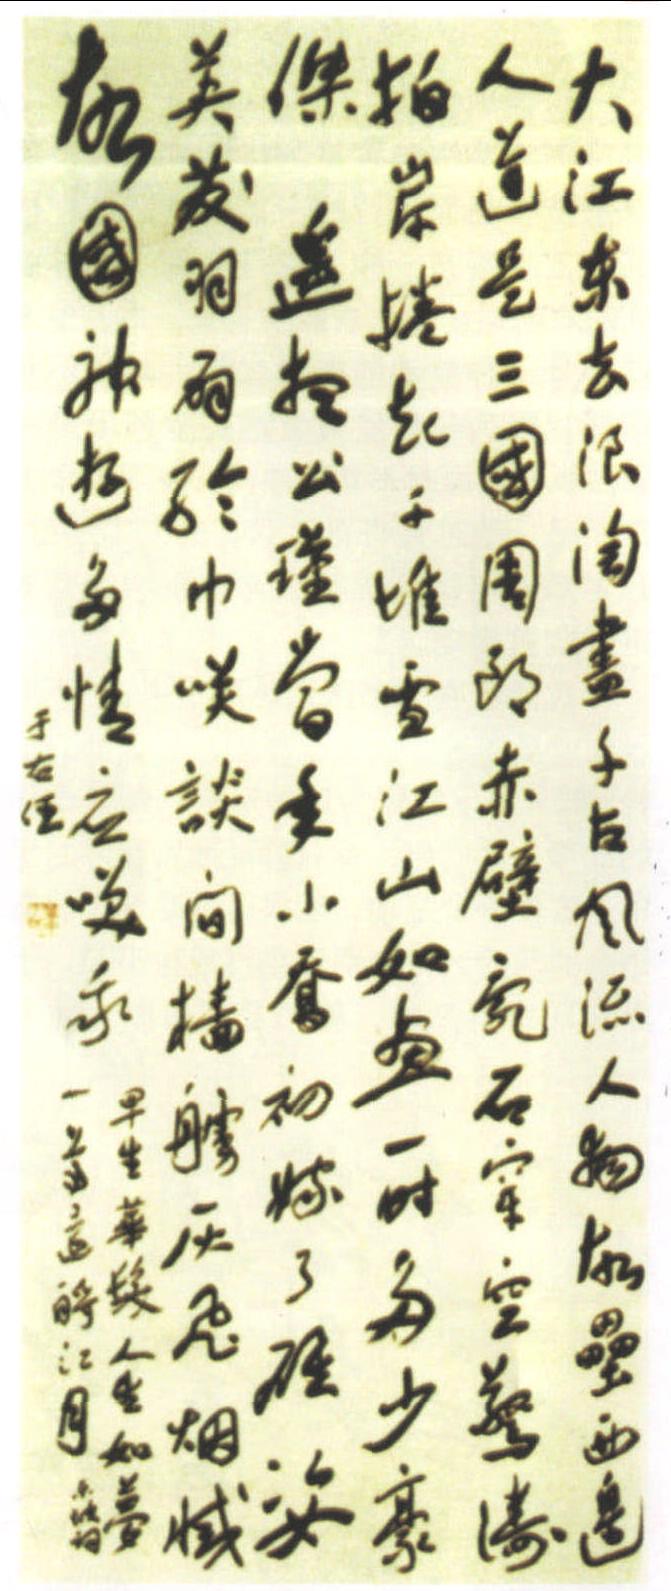 大江東去浪淘盡千古風流人物故壘西邊
人道是三國周郎赤壁亂石穿空驚濤
拍岸捲起千堆雪江山如畫一時多少豪
傑 遙想公瑾當年小喬初嫁了雄姿
英發羽扇綸巾笑談間檣艣灰飛烟滅
故國神遊多情應笑我
早生華髮人生如夢
一尊還酹江月
于右任